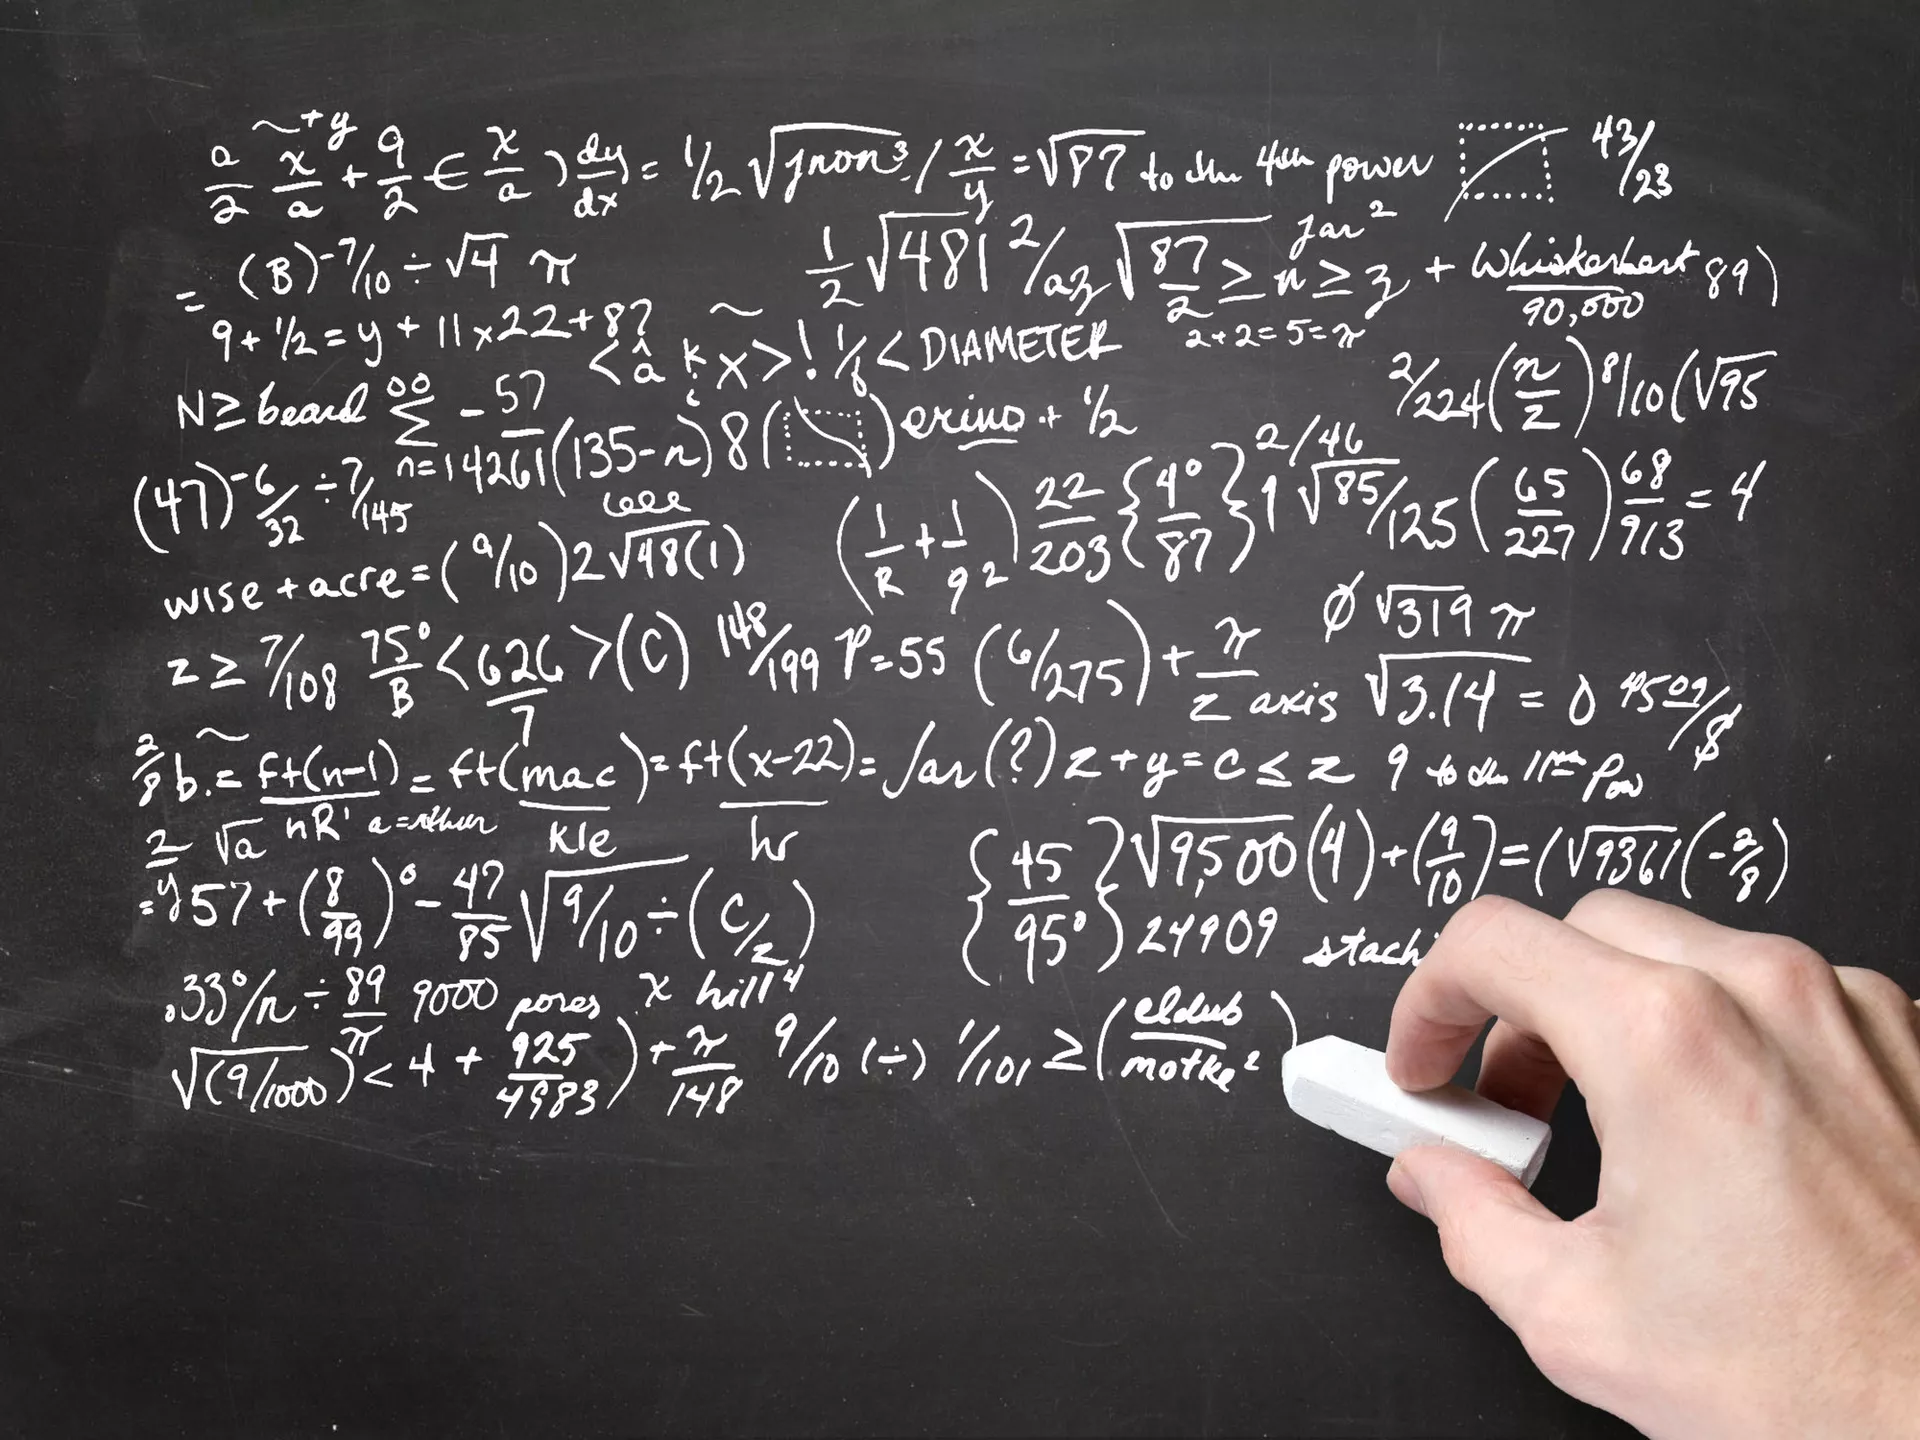 a/2 x/a ~+y + 9/2 ∈ x/a ) dy/dx = 1/2 √jnon³ / x/y = √87 to the 4th power 43/23
= (B)^-7/10 ÷ √4 π
1/2 √481 2/az √87/2 ≥ n ≥ z jar² + 89)
90,000
9 + 1/2 = y + 11x22+87
2+2=5=π
<â k x>! 1/8 < DIAMETER
N ≥ beard ∞ Σ n=14261 -57 (135-n) 8 ( ) erino + 1/2
2/224 (n/z) 8/10 (√95
(47)^-6/32 ÷ 7/145
(1/R + 1/9²) 22/203 {4°/87} 2/46 √85/125 (65/227) 68/913 = 4
wise + acre = (a/10) 2 √48(1)
Ø √319 π
z ≥ 7/108 75°/B < 626/7 > (C) 148/199 P=55 (6/275) + π/z axis √3.14 = 0
2/8 b. = ft(n-1)/nR' = ft(mac)/kle = ft(x-22)/hr = far(?) z + y = c ≤ z 9 to the 11th Pow
2/y √a a=
= 57 + (8/99)° - 47/85 √9/10 ÷ (C/z)
{45/95°} √9,500 (4) + (9/10) = (√9361 (-2/8)
24909 stach
.33°/n ÷ 89/π 9000 pores x hill⁴
√(9/1000)^π < 4 + 925/4983) + π/148 9/10 (÷) 1/101 ≥ (eldub/motke²)